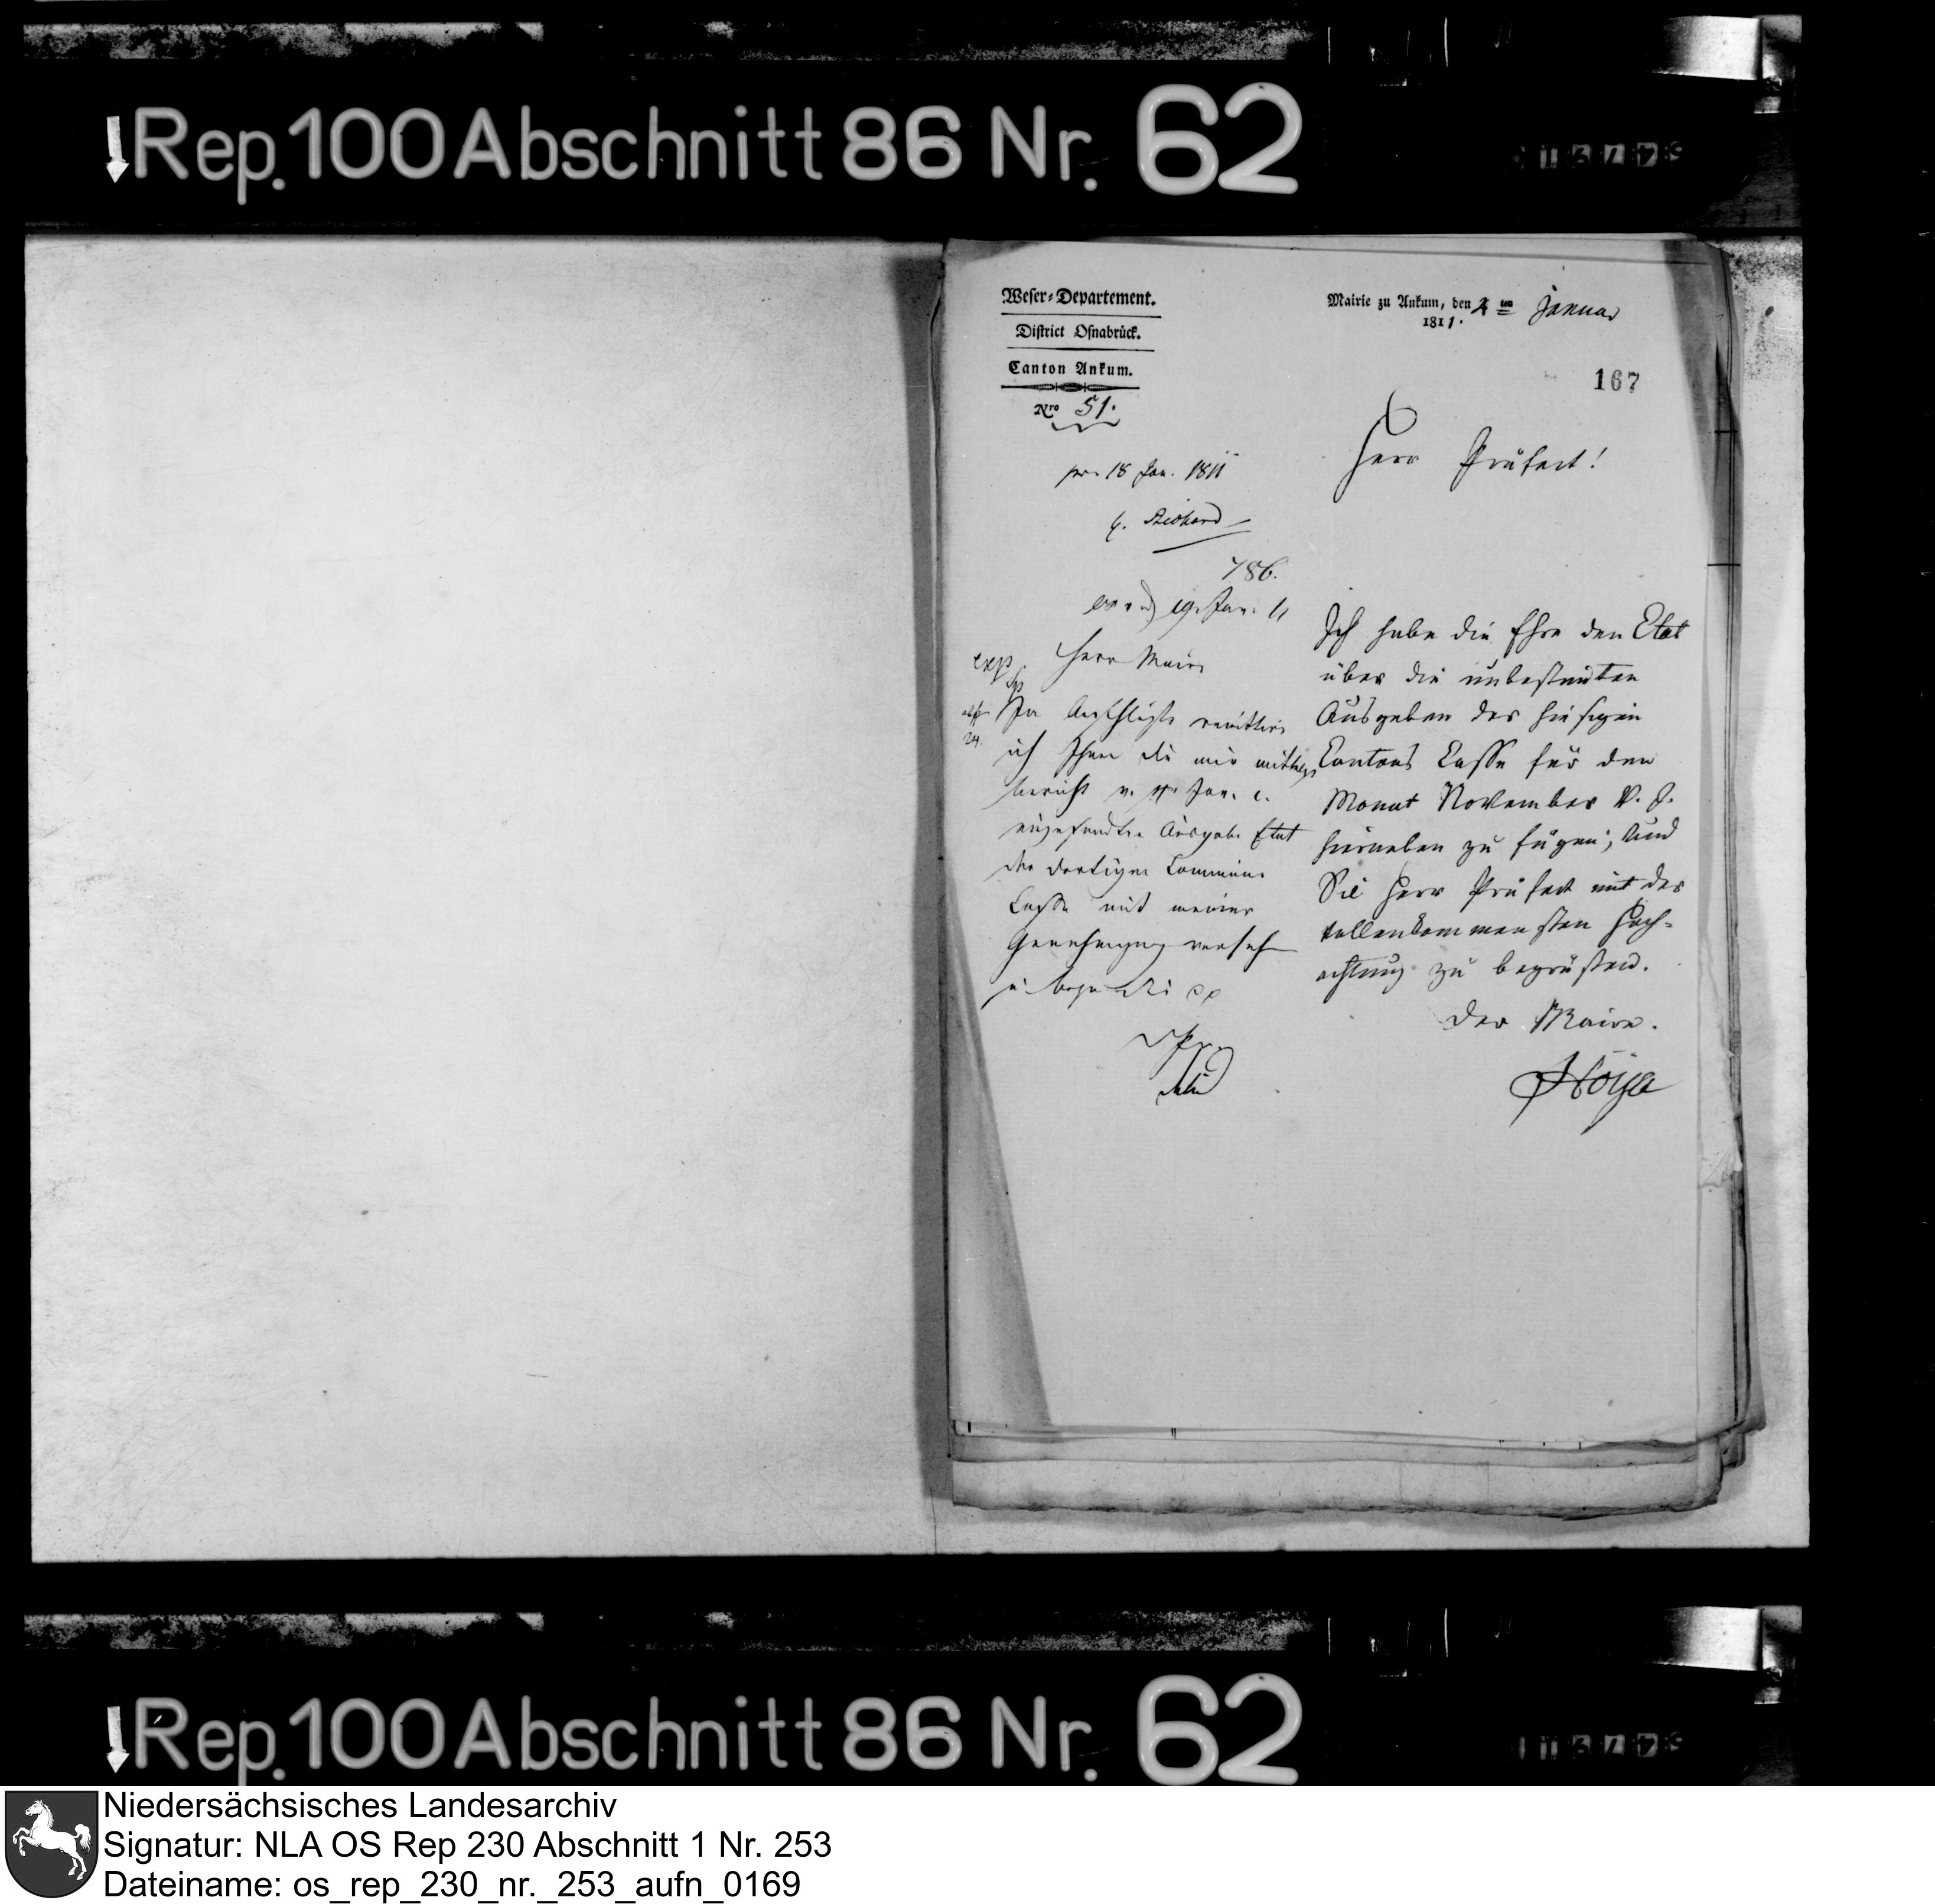 Rep. 100 Abschnitt 86 Nr. 62
Weser-Departement.
District Osnabrück.
Canton Ankum.
Nro 51.
Mairie zu Ankum, den 4ten Januar
1811.
167
Herr Präfect!
pr. 18 Jan. 1811
786.
19. Jan. 11
exp.
Herr Maire
remittire
ich Ihnen die mir mittelst
Bericht v. 4t. Jan. c.
eingesandten Ausgabe Etat
der dortigen Commune
Casse mit meiner
Genehmigung versehen
Ich habe die Ehre den Etat
über die unbestimten
Ausgaben der hiesigen
Cantons Casse für den
Monat November v. J.
hierneben zu fügen; und
Sie Herr Präfect mit der
vollenkommensten Hoch-
achtung zu begrüßen.
Der Maire.
Rep. 100 Abschnitt 86 Nr. 62
Niedersächsisches Landesarchiv
Signatur: NLA OS Rep 230 Abschnitt 1 Nr. 253
Dateiname: os_rep_230_nr._253_aufn_0169